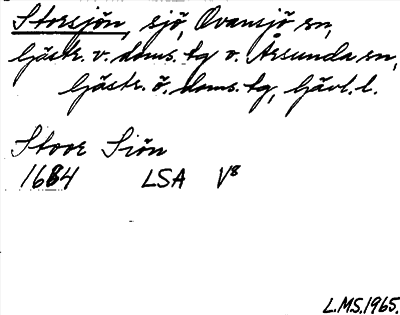 Storsjön, sjö, Ovansjö sn,
Gästr. v. doms. tg v. Årsunda sn,
Gästr. ö. doms. tg, Gävl. l.
Stoor Siön
1684 LSA V8
L.M.S. 1965.